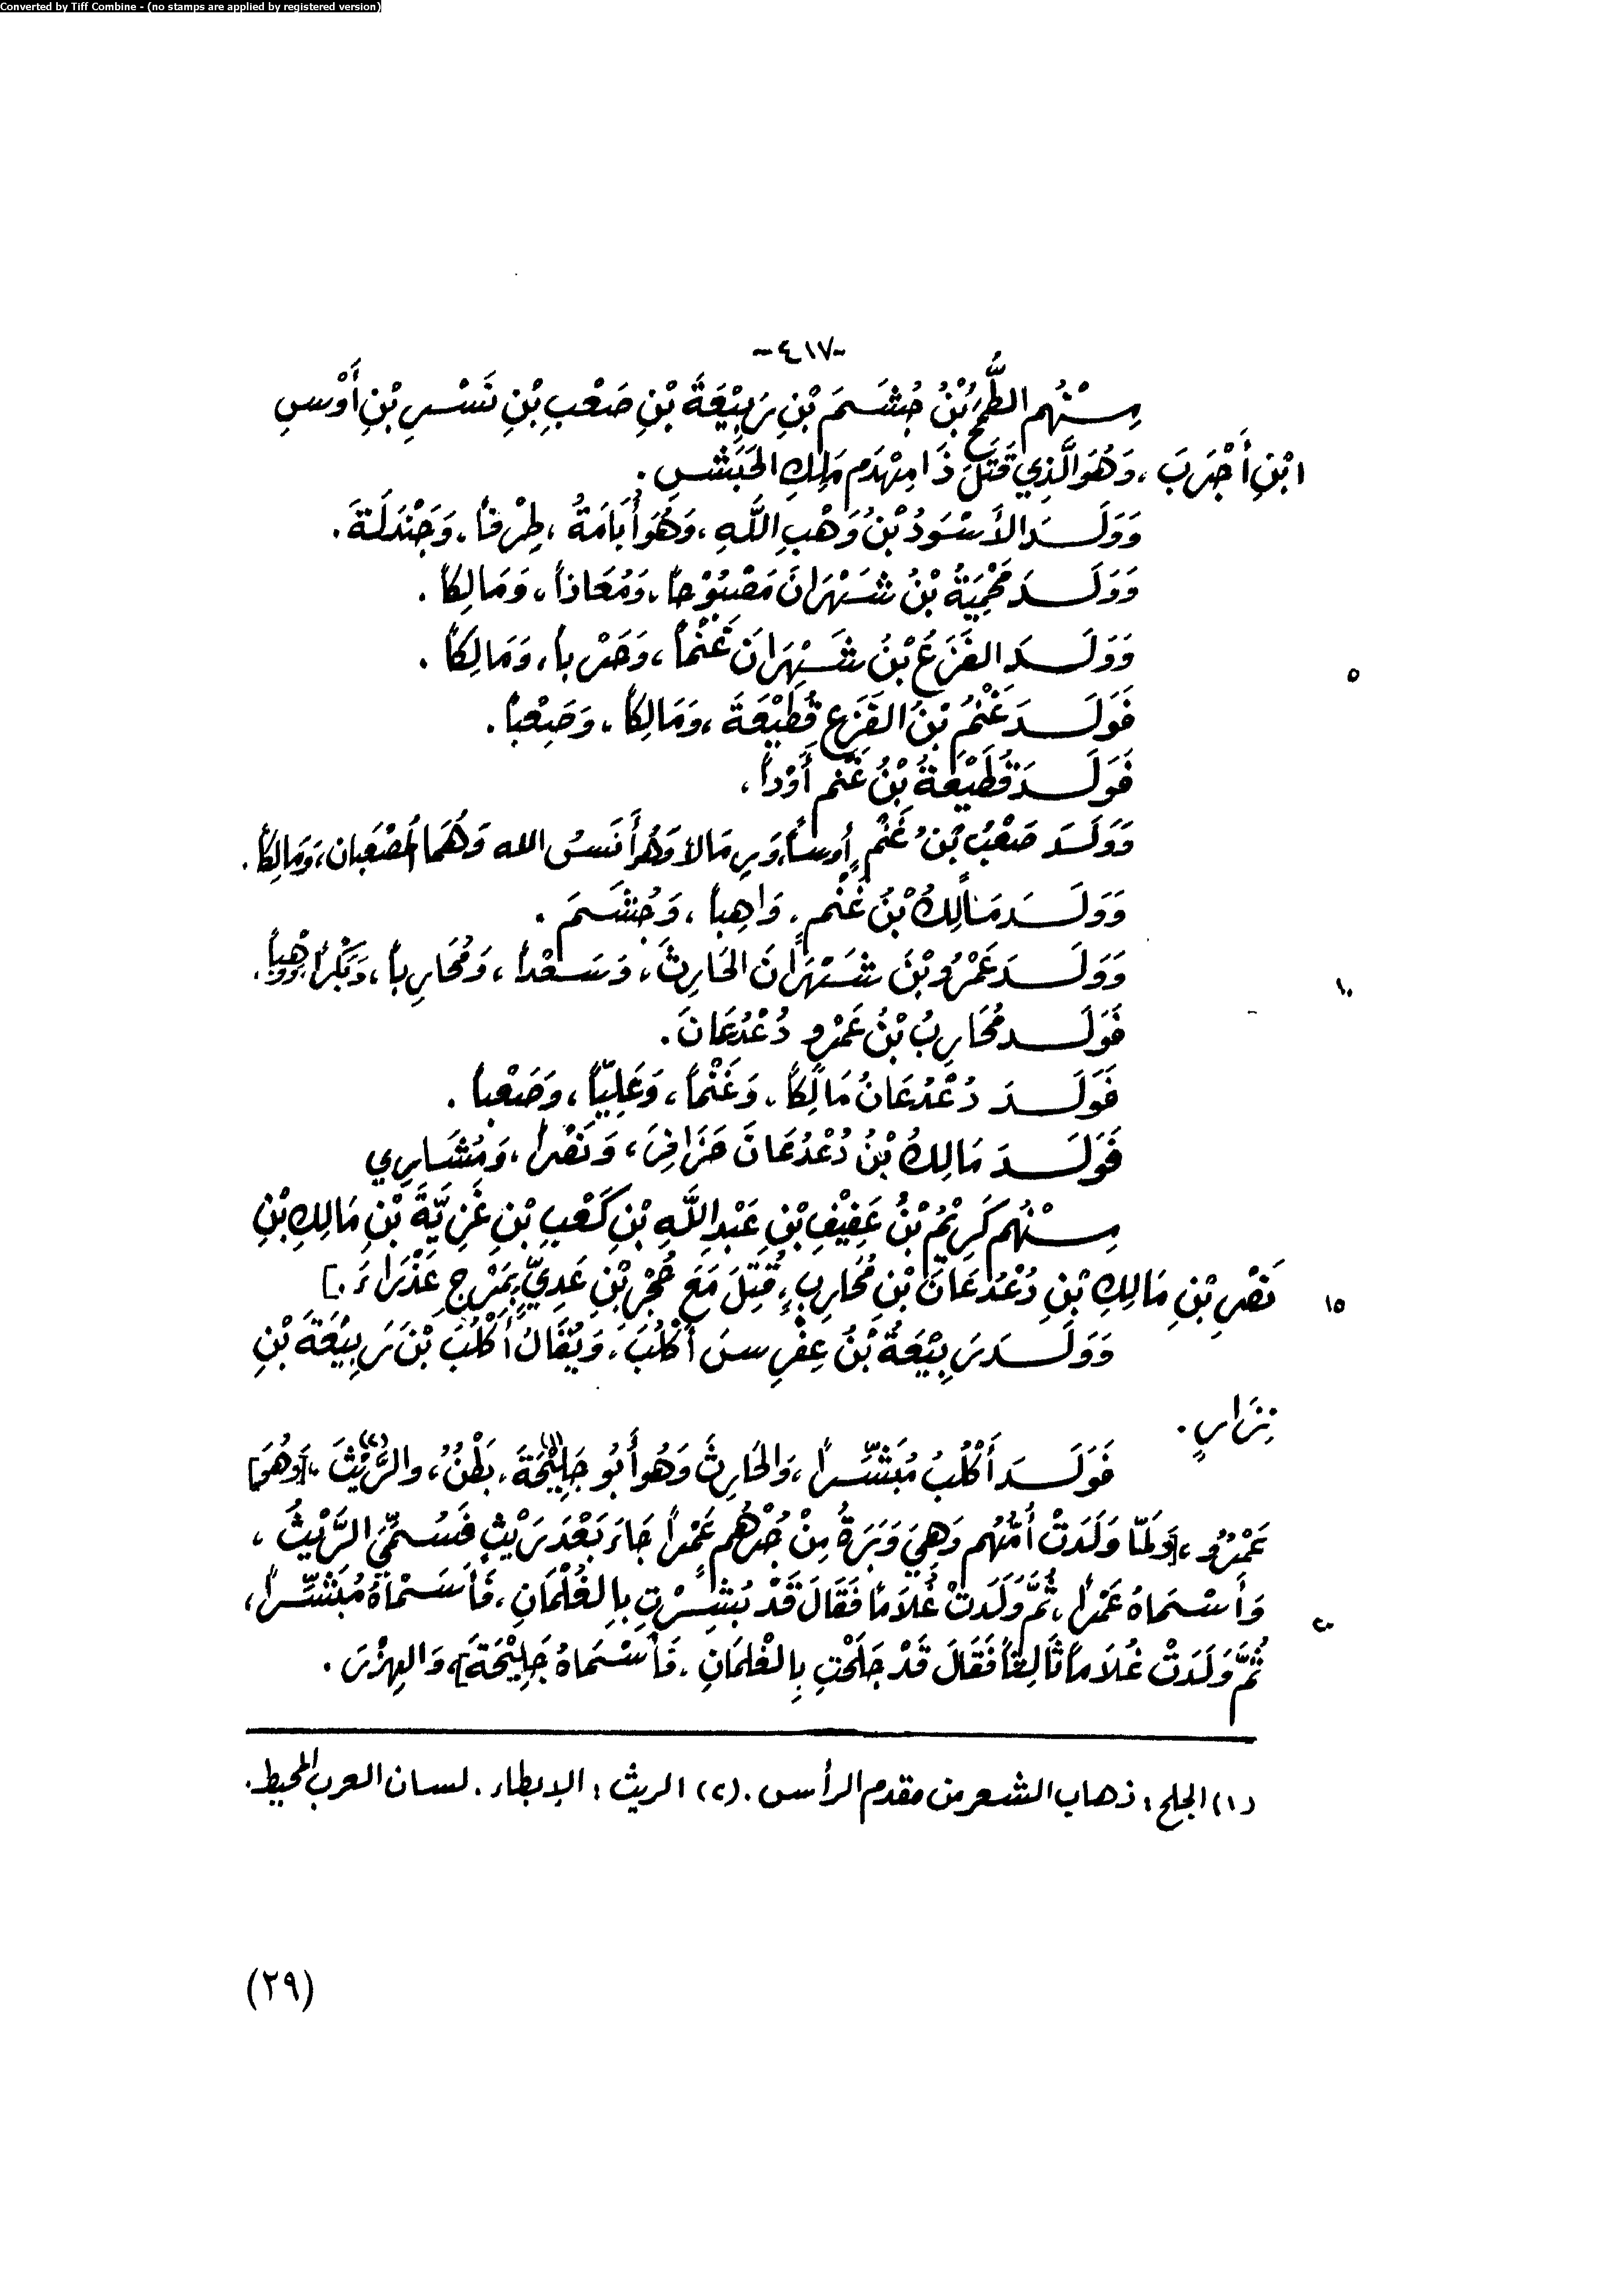 Converted by Tiff Combine - (no stamps are applied by registered version)
-٤١٧-
مِنْهُم الطَّمَحُ بْنُ جُشَمَ بْنِ رَبِيْعَةَ بْنِ صَعْبِ بْنِ نَسْرِ بْنِ أَوْسِ
ابْنِ أَجْرَبَ ، وَهُوَ الَّذِي قَتَلَ ذَا مِهْدَم مَلِكِ الحَبَشِ .
وَوَلَدَ الأَسْوَدُ بْنُ وَهْبِ اللَّهِ ، وَهُوَ أُبَامَةُ ، طِرْفاً ، وَجَنْدَلَةَ .
وَوَلَدَ مَحْمِيَةُ بْنُ شَهْرَانَ مَصْبُوْحاً ، وَمُعَاذاً ، وَمَالِكاً .
وَوَلَدَ الفَزَعُ بْنُ شَهْرَانَ غَنْماً ، وَحَرْباً ، وَمَالِكاً .
٥
فَوَلَدَ غَنْمُ بْنُ الفَزَعِ قُطَيْعَةَ ، وَمَالِكاً ، وَصَعْباً .
فَوَلَدَ قُطَيْعَةُ بْنُ غَنْمٍ أَوْداً ،
وَوَلَدَ صَعْبُ بْنُ غَنْمٍ أوساً، وَهُوَ أَنَسُ الله وَهُمَا المُصْعَبان، وَمَالِكاً .
وَوَلَدَ مَالِكُ بْنُ غَنْمٍ ، وَاهِباً ، وَجُشَمَ .
وَوَلَدَ عَمْرُو بْنُ شَهْرَانَ الحَارِثَ ، وَسَعْداً ، وَمُحَارِباً ، وَبَكْراً، وَوَهْباً .
١٠
فَوَلَدَ مُحَارِبُ بْنُ عَمْرٍو دُعْدُعَانَ .
فَوَلَدَ دُعْدُعَانُ مَالِكاً ، وَغَنْماً ، وَعَلِيّاً ، وَصَعْباً .
فَوَلَدَ مَالِكُ بْنُ دُعْدُعَانَ حَزَافِرَ ، وَنَصْراً ، وَمُشَارِي
مِنْهُم كَرِيْمُ بْنُ عَفِيْفِ بْنِ عَبْدِ اللَّهِ بْنِ كَعْبِ بْنِ غَزِيَّةَ بْنِ مَالِكِ بْنِ
نَصْرِ بْنِ مَالِكِ بْنِ دُعْدُعَانَ بْنِ مُحَارِبٍ ، قُتِلَ مَعَ حُجْرِ بْنِ عَدِيٍّ بِمَرْجِ عَذْرَاءَ .]
١٥
وَوَلَدَ رَبِيْعَةُ بْنُ عِفْرِسَ أَكْلُبَ ، وَيُقَالُ أَكْلُبُ بْنُ رَبِيْعَةَ بْنِ
نِزَارٍ .
فَوَلَدَ أَكْلُبُ مُبَشِّراً ، وَالحَارِثَ وَهُوَ أَبُو جَلِيْحَةَ(١) ، بَطْنٌ ، والرَّيْثَ(٢) ، [وَهُوَ
عَمْرُو ، [وَلَمَّا وَلَدَتْ أُمُّهُم وَهِيَ وَبَرَةُ مِنْ جُرْهُم عَمْراً جَاءَ بَعْدَ رَيْثٍ فَسُمِّيَ الرَّيْثُ ،
وَأَسْمَاهُ عَمْراً ، ثُمَّ وَلَدَتْ غُلَامَاً فَقَالَ قَدْ بُشِّرْتِ بِالغُلْمَانِ ، فَأَسْمَاهُ مُبَشِّراً ،
٢٠
ثُمَّ وَلَدَتْ غُلَامَاً ثَالِثاً فَقَالَ قَدْ جَلَحْتِ بِالغْلمَانِ ، فَأَسْمَاهُ جَلِيْحَةَ]، وَالهِزْرَ .
(١) الجلح : ذهاب الشعر من مقدم الرأس . (٢) الريث : الإبطاء . لسان العرب المحيط .
(٢٩)